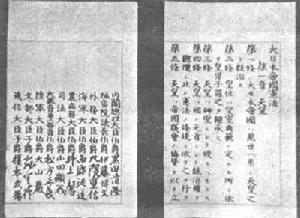 大日本帝國憲法
第一章 天皇
第一條 大日本帝國ハ萬世一系ノ天皇
之ヲ統治ス
第二條 皇位ハ皇室典範ノ定ムル所ニ依
リ皇男子孫之ヲ繼承ス
第三條 天皇ハ神聖ニシテ侵スヘカラス
第四條 天皇ハ國ノ元首ニシテ統治權ヲ
總攬シ此ノ憲法ノ條規ニ依リ之ヲ行フ
第五條 天皇ハ帝國議會ノ協贊ヲ以テ立
内閣總理大臣伯爵黒田清隆
樞密院議長伯爵伊藤博文
外務大臣伯爵大隈重信
海軍大臣伯爵西郷從道
農商務大臣伯爵井上馨
司法大臣伯爵山田顯義
大藏大臣兼内務大臣伯爵松方正義
陸軍大臣伯爵大山巖
文部大臣子爵森有禮
遞信大臣子爵榎本武揚